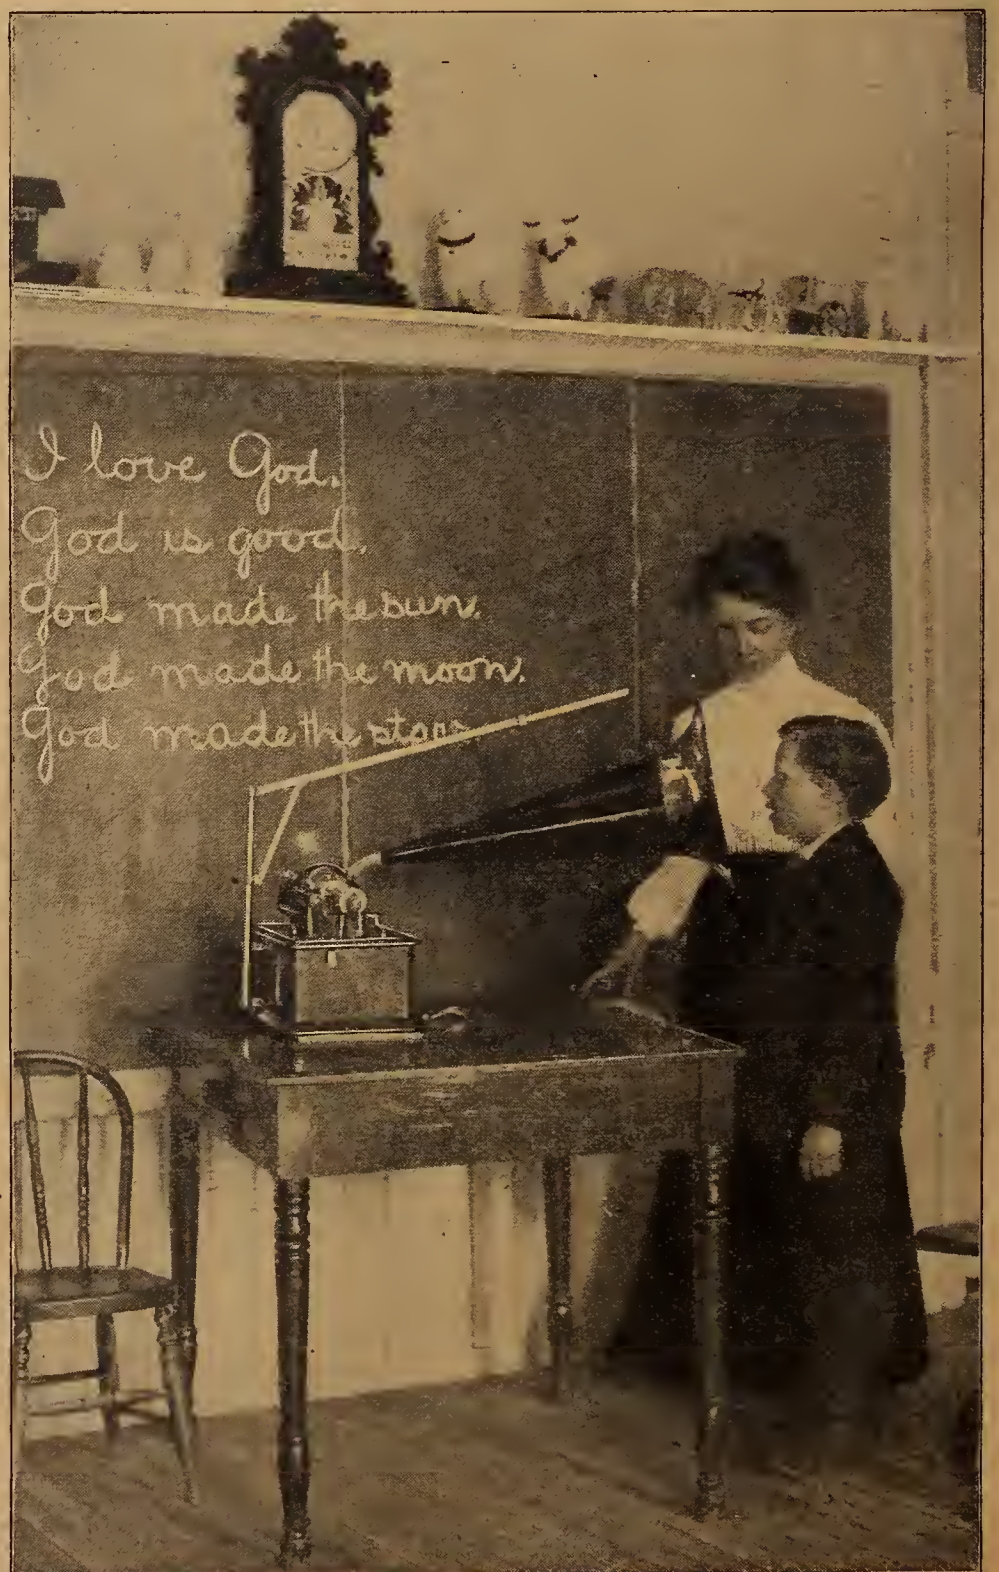 I love God.
God is good.
God made the sun.
God made the moon.
God made the stars